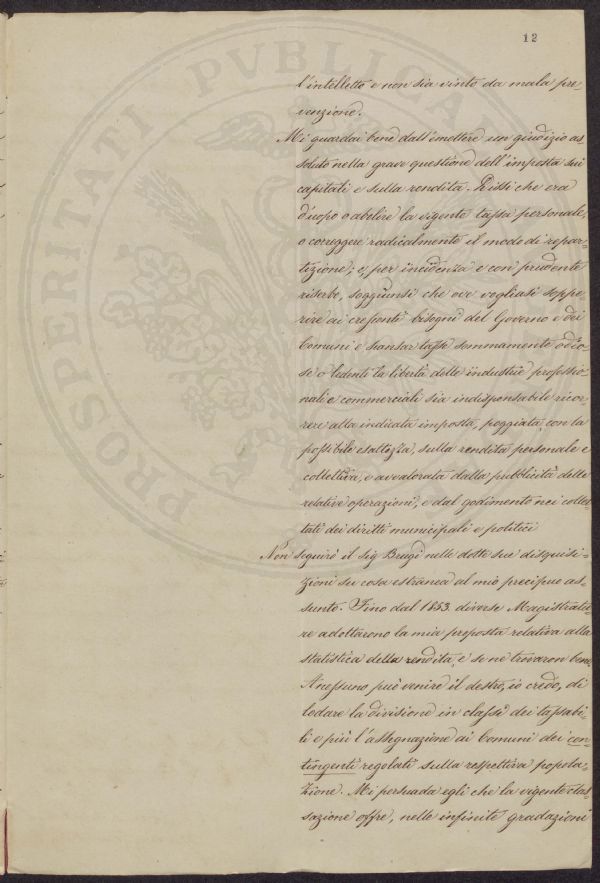 12
l'intelletto e non sia vinto da mala pre-
venzione.
Mi guardai bene dall'emettere un giudizio as-
soluto nella grave questione dell'imposta sui
capitali e sulla rendita. Dissi che era
d'uopo o abolire la vigente tassa personale,
o correggere radicalmente il modo di repar-
tizione; e, per incidenza e con prudente
riserbo, soggiunsi che ove vogliasi soppe-
rire ai crescenti bisogni del Governo e dei
Comuni e scansar tasse sommamente odio-
se o ledenti la libertà delle industrie professio-
nali e commerciali sia indispensabile ricor-
rere alla indicata imposta, poggiata con la
possibile esattezza, sulla rendita personale e
collettiva, e avvalorata dalla pubblicità delle
relative operazioni, e dal godimento nei collet-
tati dei diritti municipali e politici
Non seguirò il Sig Brugi nelle dotte sue disquisi-
zioni su cosa estranea al mio precipuo as-
sunto. Fino dal 1853. diverse Magistratu-
re adottarono la mia proposta relativa alla
statistica della rendita, e se ne trovaron bene.
A nessuno può venire il destro, io credo, di
lodare la divisione in classi dei tassabi-
li e più l'assegnazione ai Comuni dei con-
tingenti regolati sulla respettiva popola-
zione. Mi persuada egli che la vigente clas-
sazione offre, nelle infinite gradazioni
PROSPERITATI PVBLICAE